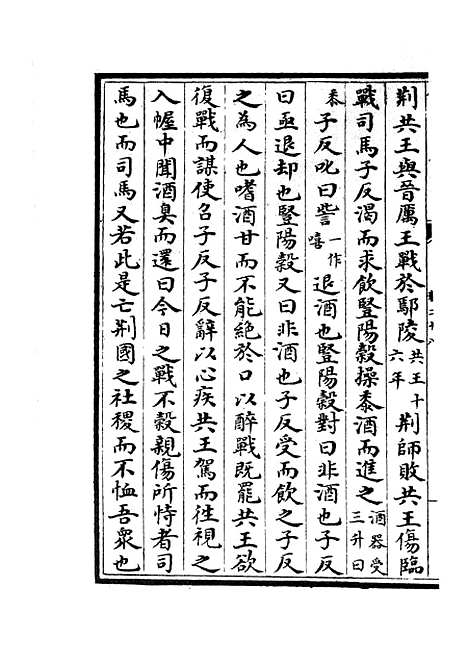 荆共王與晉厲王戰於鄢陵共王十六年荆師敗共王傷臨
戰司馬子反渴而求飲豎陽榖操黍酒而進之酒器受三升曰
黍子反叱曰訾一作嘻退酒也豎陽榖對曰非酒也子反
曰亟退却也豎陽榖又曰非酒也子反受而飲之子反
之為人也嗜酒甘而不能絶於口以醉戰既罷共王欲
復戰而謀使召子反子反辭以心疾共王駕而徃視之
入幄中聞酒臭而還曰今日之戰不榖親傷所恃者司
馬也而司馬又若此是亡荆國之社稷而不恤吾衆也